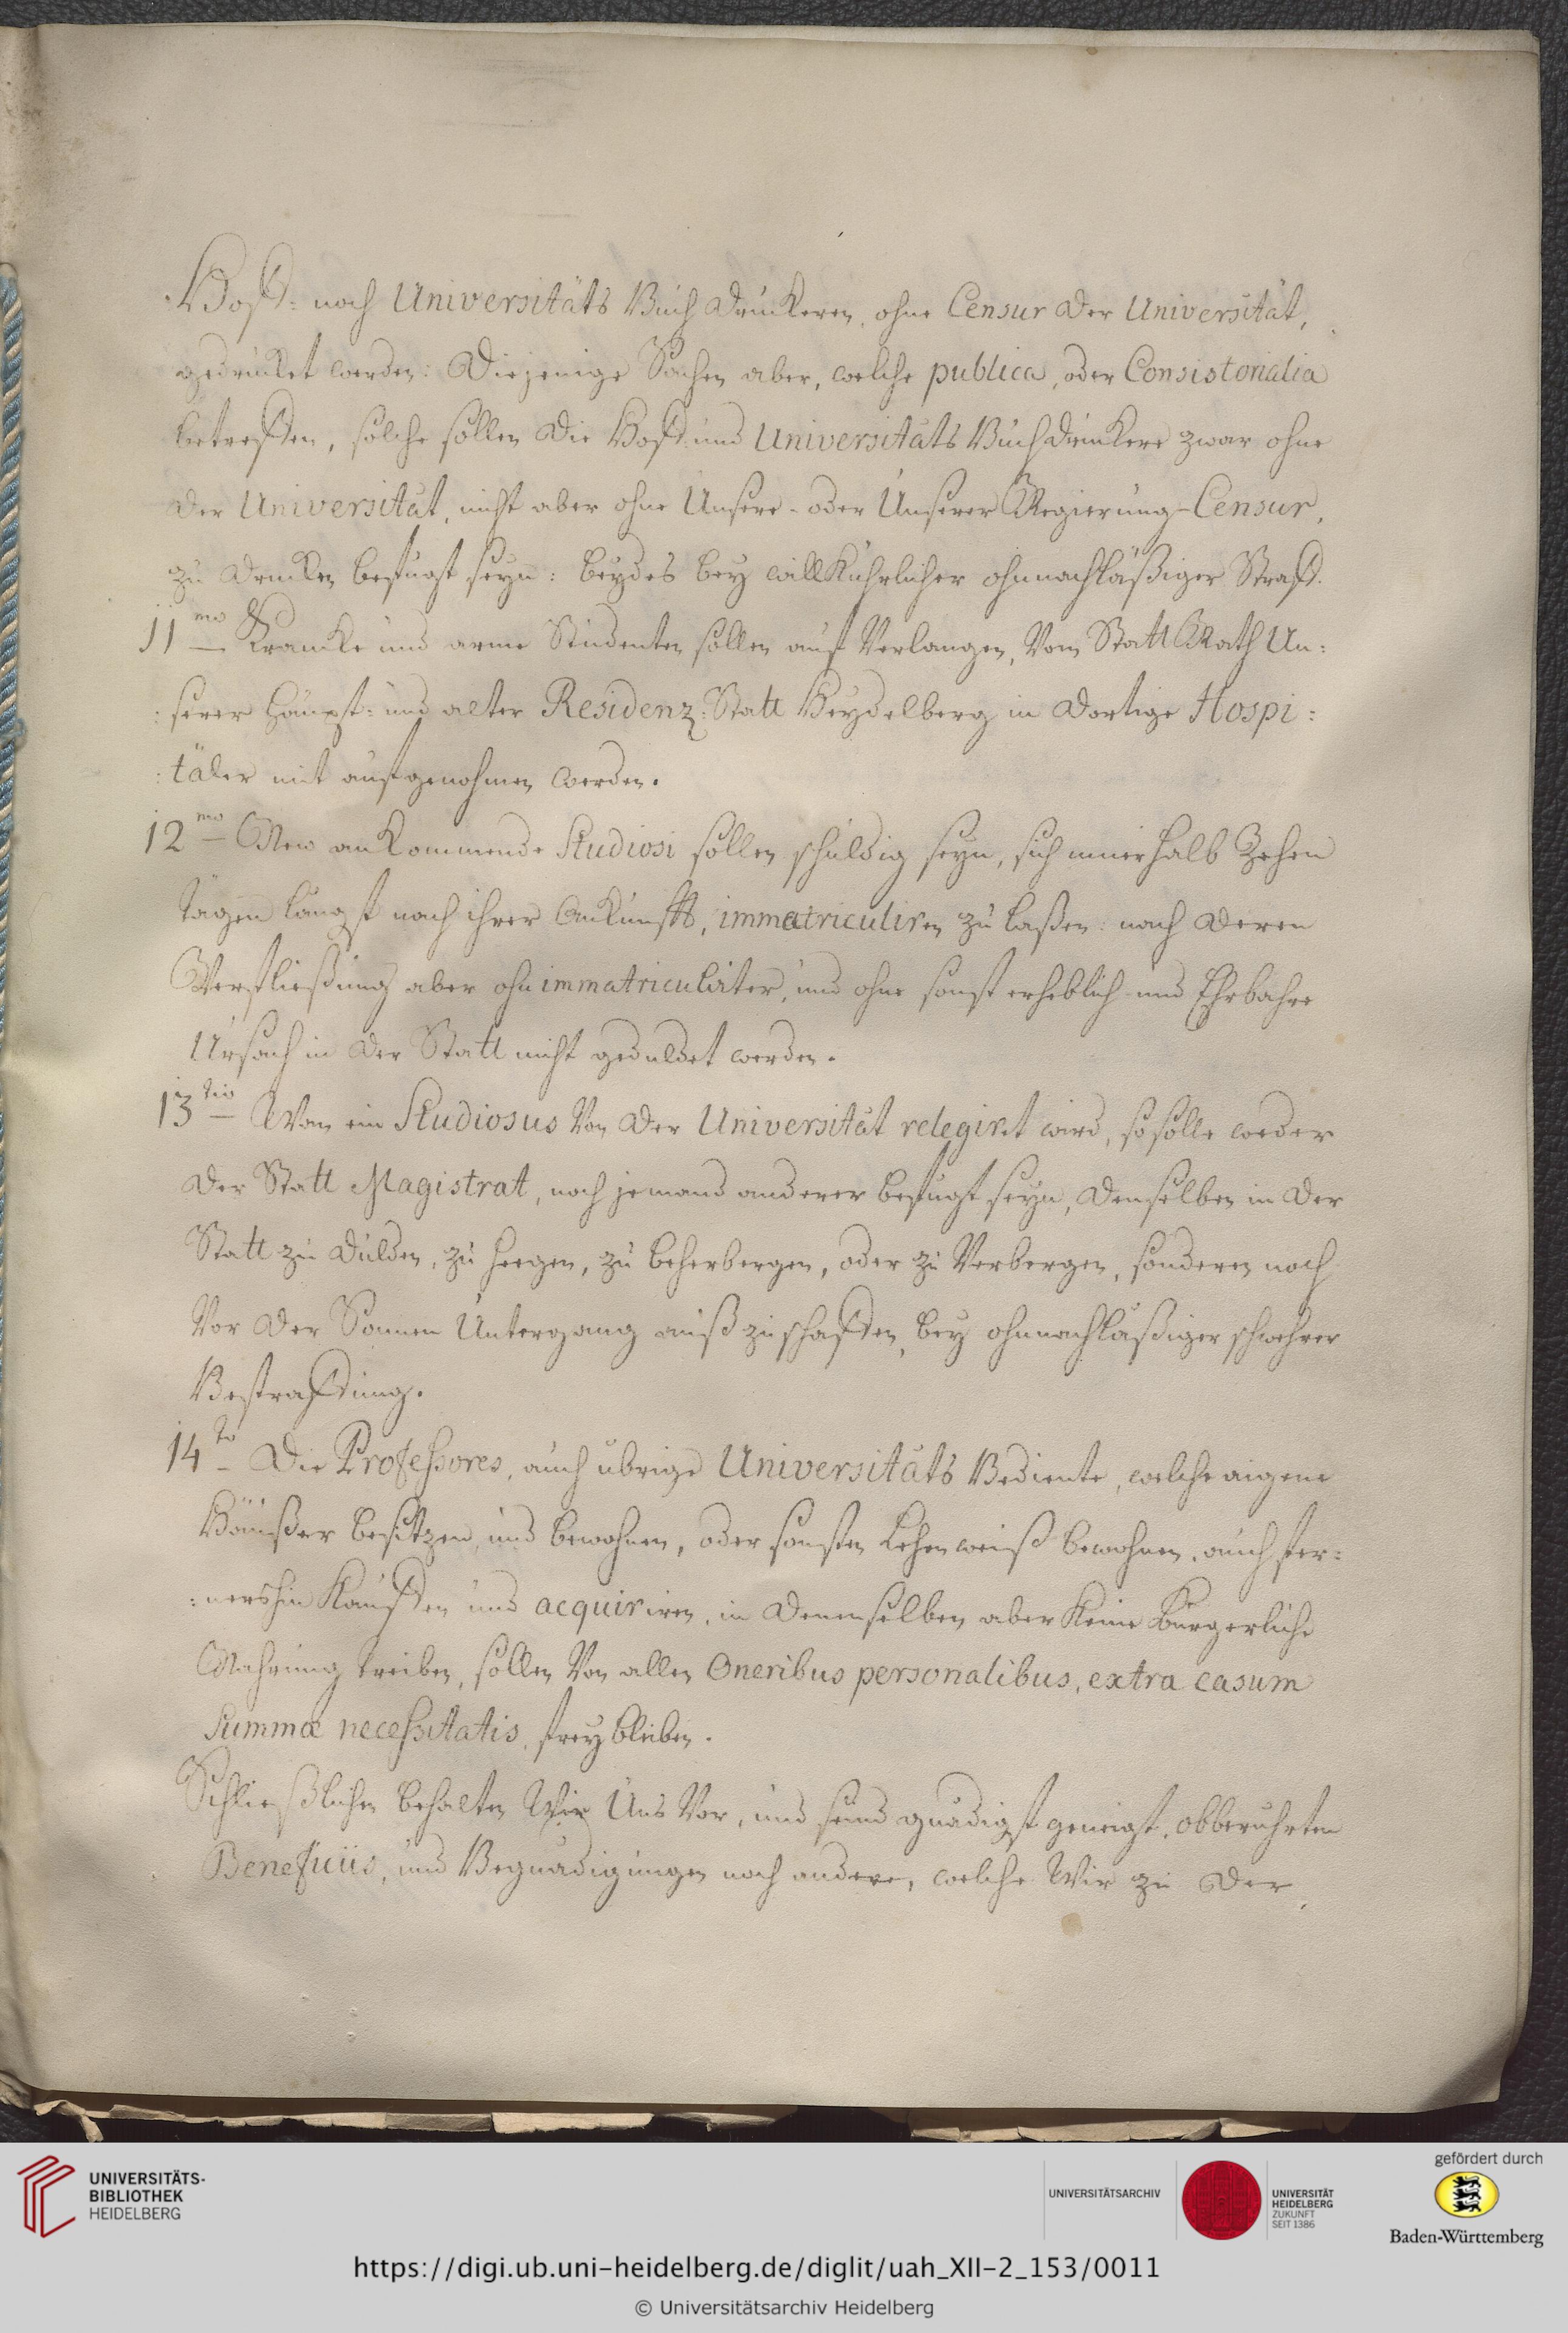 Hoff- noch Universitäts Buch druckeren, ohne Censur der Universität,
gedrucket werden: Diejenige Sachen aber, welche publica, oder Consistorialia
betreffen, solche sollen die Hoff- und Universitäts Buchdruckere zwar ohne
der Universität, nicht aber ohne Unsere- oder Unserer Regierung-Censur,
zu drucken befugt seyn: beydes bey willkührlicher ohnnachläßiger Straff.
11mo Krancke und arme Studenten sollen auf Verlangen, Vom Statt Rath Un:
:serer Haupt- und alter Residenz-Statt Heydelberg in dortige Hospi:
:täler mit aufgenohmen werden.
12mo New ankommende Studiosi sollen schuldig seyn, sich innerhalb Zehen
tägen längst nach ihrer Ankunfft, immatriculiren zu laßen: nach deren
Verfließung aber ohn immatriculirter, und ohne sonst erheblich- und Ehrbahre
Ursach in der Statt nicht geduldet werden.
13tio Wan ein Studiosus Von der Universität relegiret wird, so solle weder
der Statt Magistrat, noch jemand anderer befugt seyn, denselben in der
Statt zu dulden, zu heegen, zu beherbergen, oder zu Verbergen, sonderen noch
Vor der Sonnen Untergang auß zu schaffen, bey ohnnachläßiger schwehrer
Bestraffung.
14to Die Professores, auch übrige Universitäts Bediente, welche aigene
Häußer besitzen, und bewohnen, oder sonsten Lehenweiß bewohnen, auch fer:
:nershin kauffen und acquiriren, in denenselben aber keine Burgerliche
Nahrung treiben, sollen Von allen Oneribus personalibus, extra casum
summæ necessitatis, frey bleiben.
Schließlichen behalten Wir Uns Vor, und seind gnädigst geneigt, obberührten
Beneficiis, und Begnadigungen noch andere, welche Wir zu der
UNIVERSITÄTS-
BIBLIOTHEK
HEIDELBERG
UNIVERSITÄTSARCHIV
UNIVERSITÄT
HEIDELBERG
ZUKUNFT
SEIT 1386
gefördert durch
Baden-Württemberg
https://digi.ub.uni-heidelberg.de/diglit/uah_XII-2_153/0011
© Universitätsarchiv Heidelberg